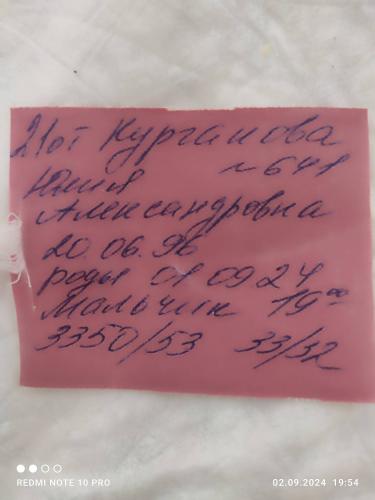 21от Курганова
Юлия № 641
Александровна
20.06.96
роды 01 09 24
Мальчик 19 00
3350/53 33/32
REDMI NOTE 10 PRO
02.09.2024 19:54